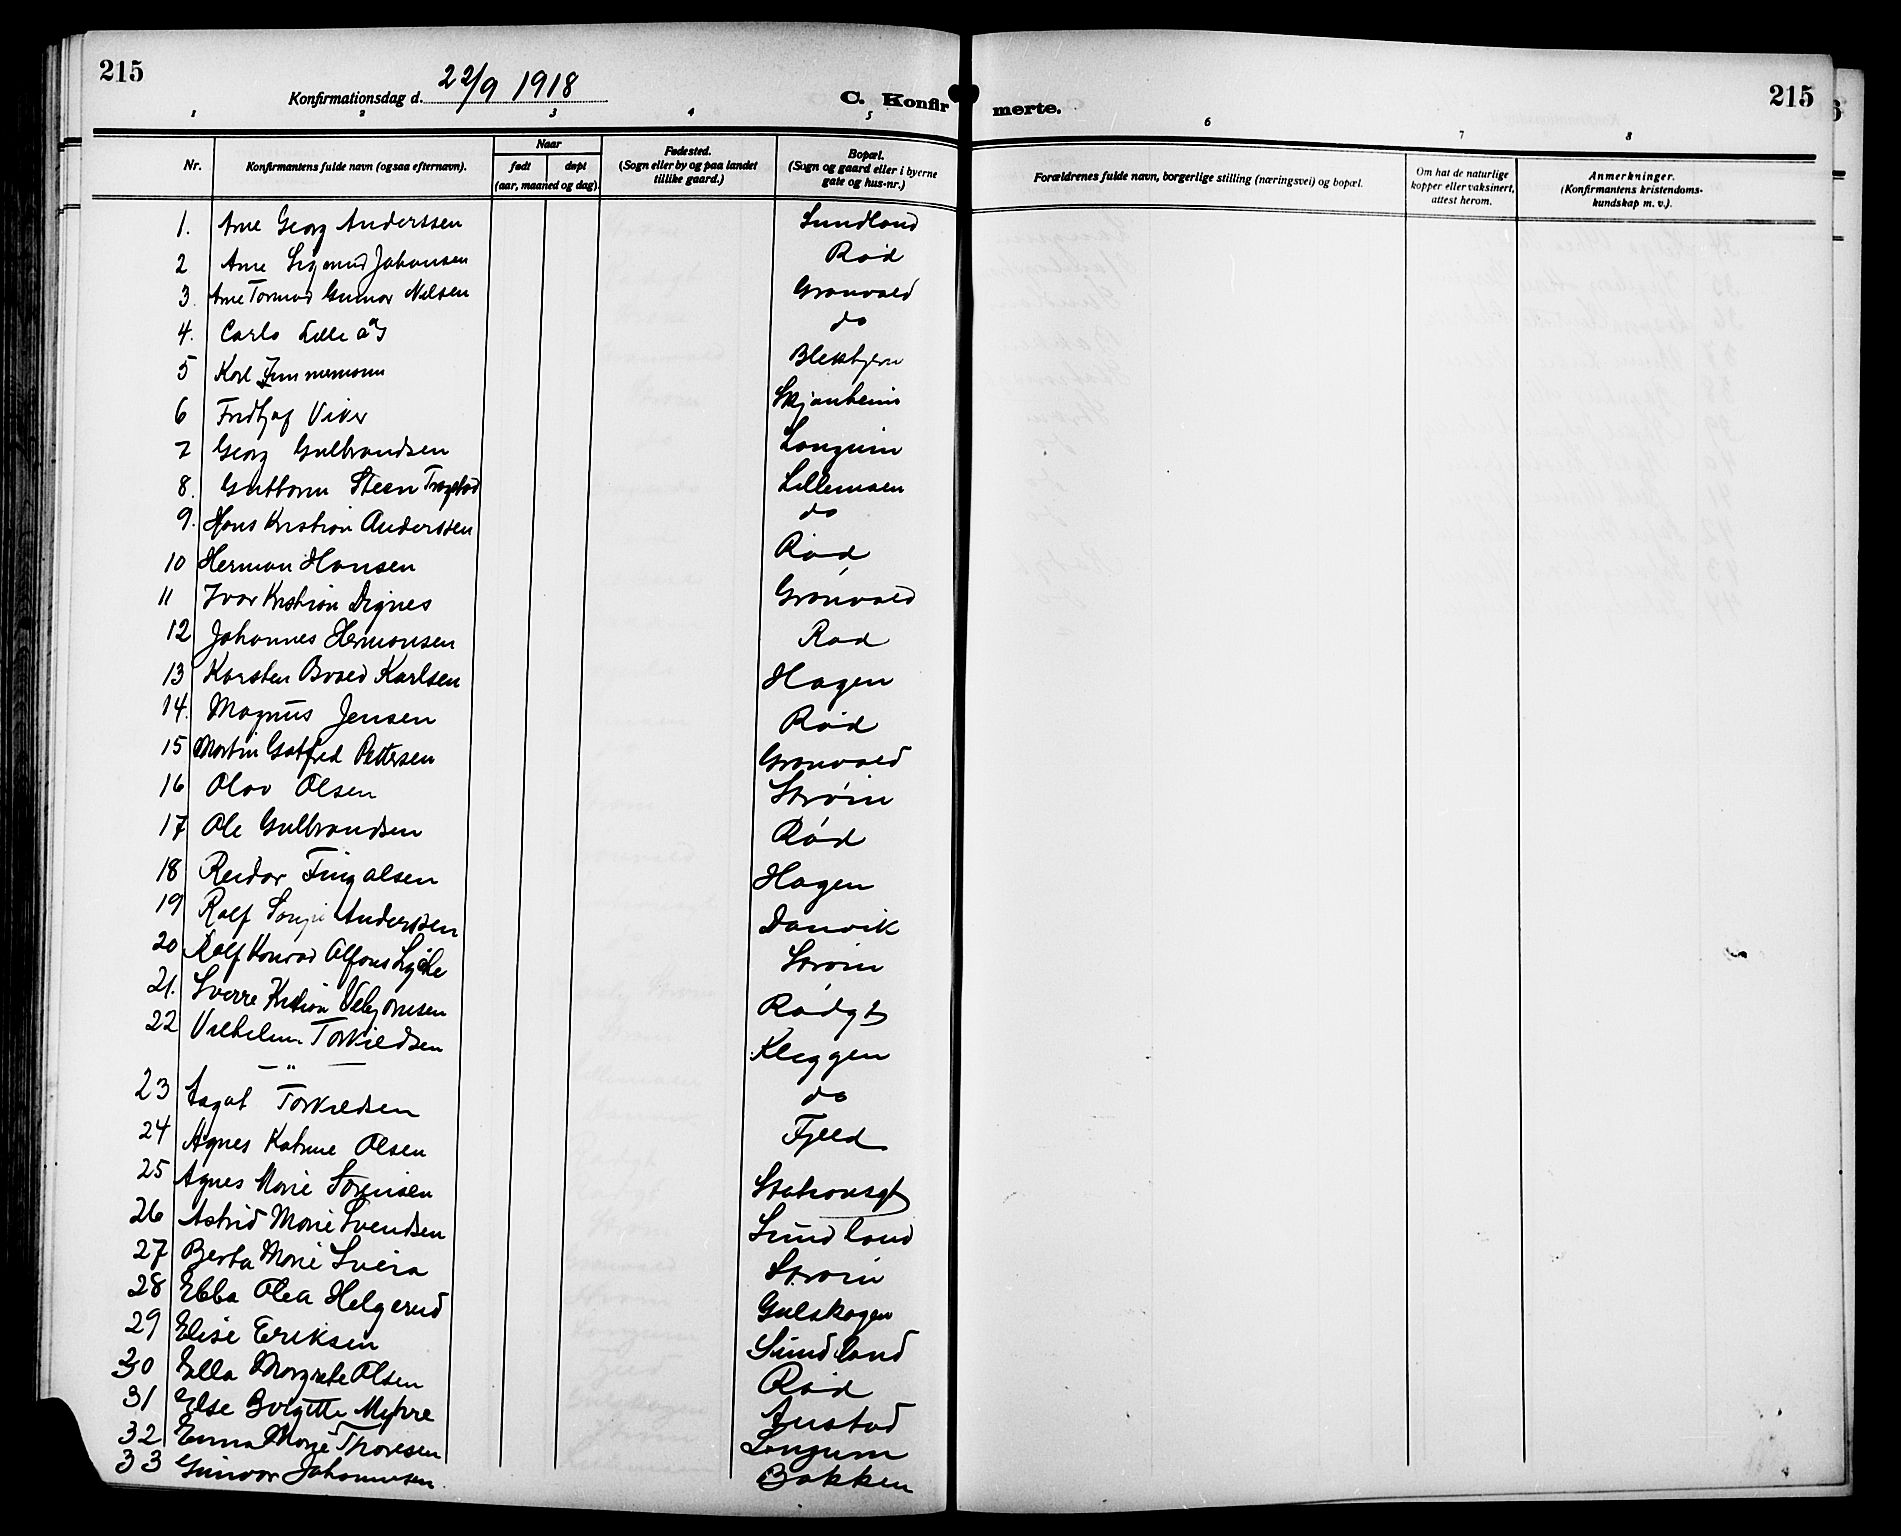 215
Konfirmationsdag d. 22/9 1918
C. Konfir merte.
215
1 2 3 4 5 6 7 8
Nr.
Konfirmantens fulde navn (ogsaa efternavn).
Naar
født døpt
(aar, maaned og dag).
Fødested.
(Sogn eller by og paa landet
tillike gaard.)
Bopæl.
(Sogn og gaard eller i byerne
gate og hus-nr.)
Forældrenes fulde navn, borgerlige stilling (næringsvei) og bopæl.
Om hat de naturlige
kopper eller vaksinert,
attest herom.
Anmerkninger.
(Konfirmantens kristendoms-
kundskap m. v.).
1. Arne Georg Anderssen Sundland
2 Arne Sigmund Johansen Rød
3. Arne Tormod Gunnar Nilsen Grønvold
4. Carlo Lilleås do
5 Karl Zimmermann
6 Fridtjof Viker Skjønheim
7 Georg Gulbrandsen Longum
8. Guttorm Steen Trøgstad Lillemoen
9. Hans Kristian Anderssen do
10 Herman Hansen Rød
11 Ivar Kristian Dignes Grønvold
12 Johannes Hermansen Rød
13 Karsten Bvald Karlsen Hagen
14. Magnus Jensen Rød
15 Martin Gotfred Pettersen Grønvold
16 Olav Olsen Strøm
17 Ole Gulbrandsen Rød
18 Reidar Fingalsen Hagen
19 Rolf Anderssen Danvik
20 Rolf Konrad Alfons Strøm
21. Sverre Kristian Rødgt
22 Vilhelm Torkildsen Kleggen
— " —
23 Aagot Torkildsen do
24 Agnes Katrine Olsen Fjeld
25 Agnes Marie Sørensen Stationsgt
26 Astrid Marie Svendsen Sundland
27 Berta Marie Sveia Strøm
28 Ebba Olea Helgerud Gulskogen
29 Elise Eriksen Sundland
30 Ella Margrete Olsen Rød
31 Else Birgitte Myhre Austad
32 Emma Marie Thoresen Longum
33 Gunvor Johannesen Bakken